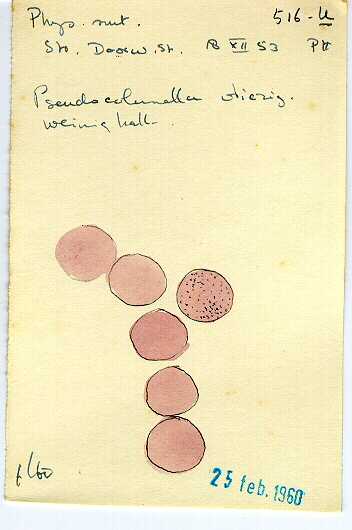 Phys. nut. 516-U
Sto. Doorw. St. B XII 53 PH
Pseudocolumella
weinig kalk.
25 feb. 1960